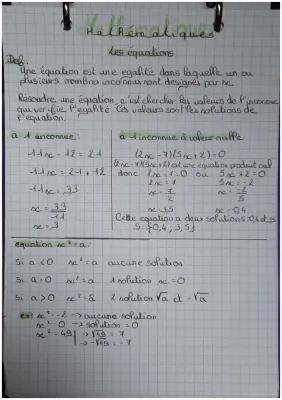 Mathématiques
Les équations
Def:
Une équation est une egalité dans laquelle un ou
plusieurs nombres inconnus sont designés par x.
Resoudre une équation, c'est chercher les valeurs de l'inconnue
qui verifie l'egalité. Ces valeurs sont les solutions de
l'equation.
à 1 inconnue:
11x - 12 = 21
11x = 21 + 12
11x = 33
x = 33/11
x = 3
à 1 inconnue à valeur nulle
(2x - 7)(5x + 2) = 0
(2x - 7)(5x + 2) est une équation produit nul
donc 2x - 7 = 0 ou 5x + 2 = 0
2x = 7 5x = -2
x = 7/2 x = -2/5
x = 3,5 x = 0,4
Cette equation a deux solutions 0,4 et 3,5
S = {0,4 , 3,5}
equation x² = a
Si a < 0 x² = a aucune solution
Si a = 0 x² = a 1 solution x = 0
Si a > 0 x² = a 2 solution √a et -√a
ex: x² = -2 → aucune solution
x² = 0 → solution = 0
x² = 49 → √49 = 7
→ -√49 = -7